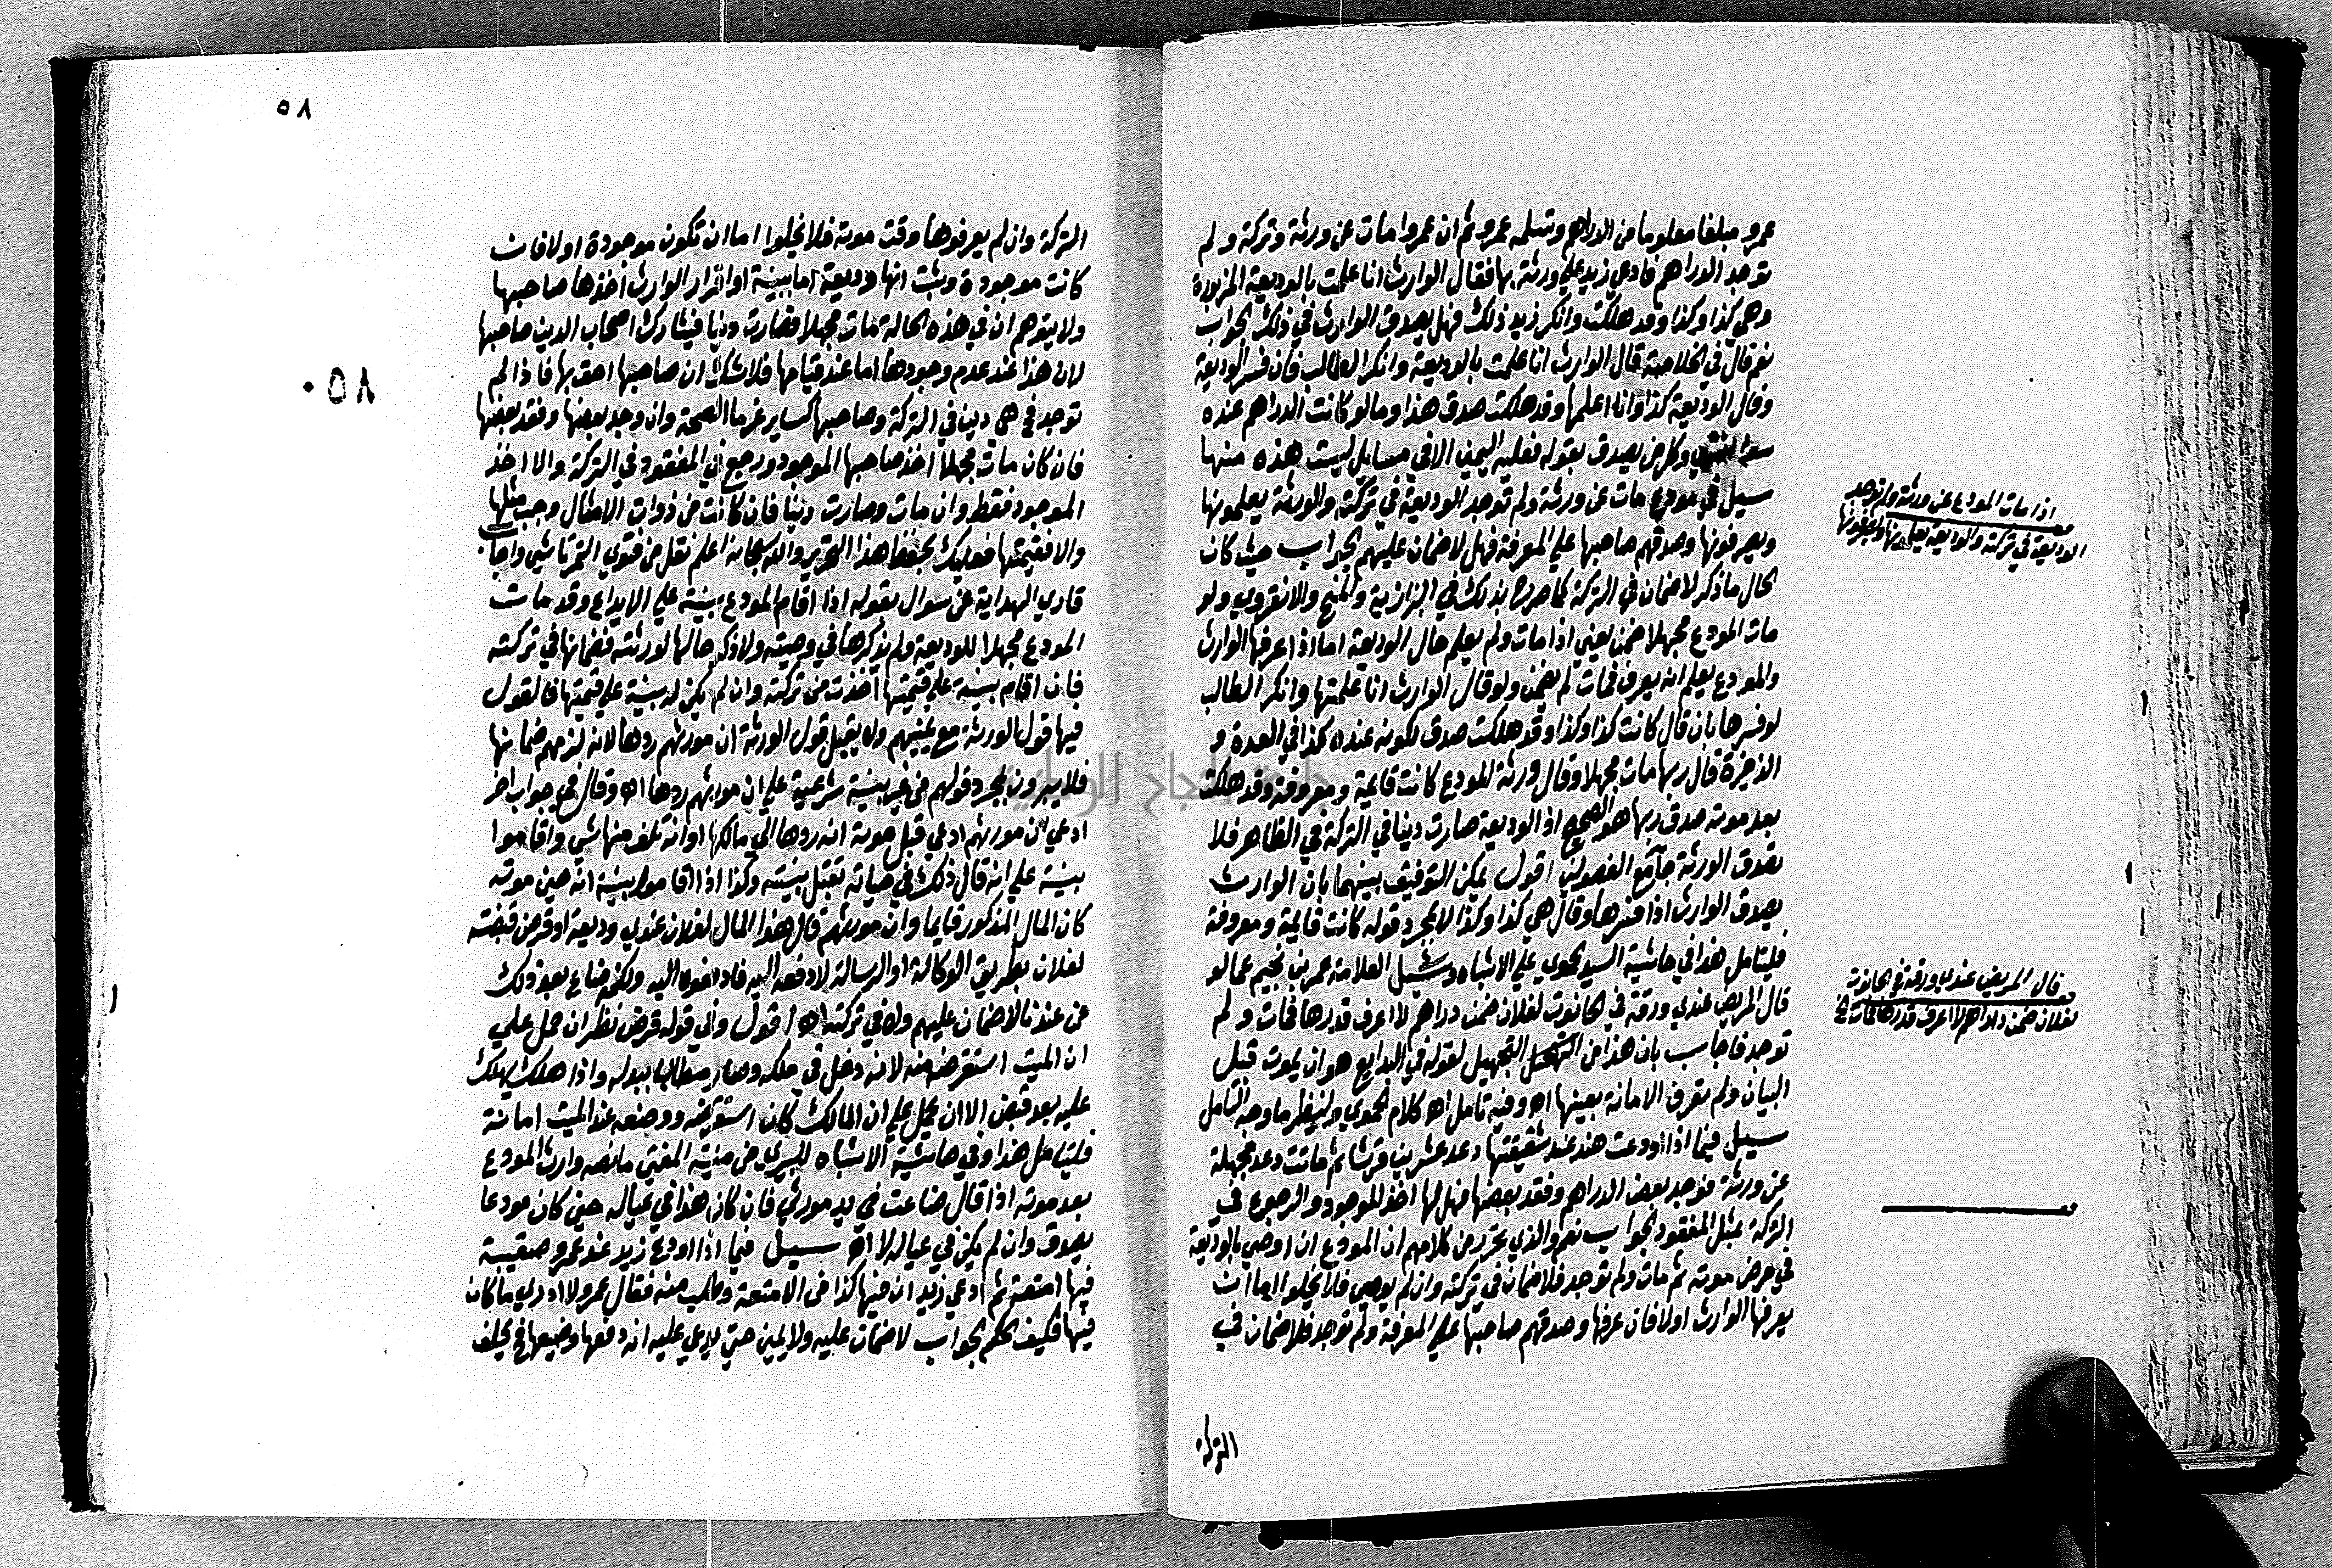 عمرو مبلغا معلوما من الدراهم وتسلمه عمرو ثم ان عمروا مات عن ورثة وتركة ولم
توجد الدراهم فادعي زيد علي ورثة بها فقال الوارث انا علمت بالوديعة المزبورة
وهي كذا وكذا وقد هلكت وانكر زيد ذلك فهل يصدق الوارث في ذلك الجواب
نعم قال في الخلاصة قال الوارث انا علمت بالوديعة وانكر الطالب فان فسر الوديعة
وقال الوديعة كذا وانا اعلمها وقد هلكت صدق هذا وما لو كانت الدراهم عنده
سوا وكل من يصدق بقوله فعليه اليمين الا في مسايل ليست هذه منها
سيل في مودع مات عن ورثة ولم توجد الوديعة في تركته والورثة يعلمونها
ويعرفونها وصدقهم صاحبها علي المعرفة فهل لا ضمان عليهم الجواب حيث كان
الحال ما ذكر لا ضمان في التركة كما صرح بذلك في البزازية والمنح والانقروي ولو
مات المودع مجهلا ضمن يعني اذا مات ولم يعلم حال الوديعة اما اذا عرفها الوارث
والمودع يعلم انه يعرف فمات لم يضمن ولو قال الوارث انا علمتها وانكر الطالب
لو فسرها بان قال كانت كذا وكذا وقد هلكت صدق لكونه عنده كذا في العدة و
الذخيرة قال ربها مات مجهلا وقال ورثة المودع كانت قايمة ومعروفة وقد هلكت
بعد موته صدق ربها هو الصحيح اذ الوديعة صارت دينا في التركة في الظاهر فلا
يصدق الورثة جامع الفصولين اقول يمكن التوفيق بينهما بان الوارث
يصدق الوارث اذا فسرها وقال هي كذا وكذا لا بمجرد قوله كانت قايمة ومعروفة
فليتامل هذا في حاشية السيد الحموي علي الاشباه وسيل العلامة عمر بن نجيم عما لو
قال المريض عندي ورقة في الحانوت لفلان ضمن دراهم لا اعرف قدرها فمات ولم
توجد فاجاب بان هذا من التجهيل لقوله في البدايع هو ان يموت قبل
البيان ولم تعرف الامانة بعينها اه وفيه تامل اه كلام الحموي ولينظر ما وجه التامل
سيل فيما اذا اودعت هند عند شقيقتها دعد عشرين قرشا ثم ماتت دعد مجهلة
عن ورثة فوجد بعض الدراهم وفقد بعضها فهل لها اخذ الموجود والرجوع في
التركة بمثل المفقود الجواب نعم والذي تحرر من كلامهم ان المودع ان اوصي بالوديعة
في مرض موته ثم مات ولم توجد فلا ضمان في تركته وان لم يوصي فلا يخلو اما ان
يعرفها الوارث اولا فان عرفها وصدقهم صاحبها علي المعرفة ولم توجد فلا ضمان في
التركة
اذا مات المودع عن ورثة ولم توجد
الوديعة في تركته والورثة يعلمونها ويعرفونها
قال المريض عندي ورقة في الحانوت
لفلان ضمن دراهم لا اعرف قدرها فمات
٥٨
٥٨
التركة وان لم يعرفوها وقت موته فلا يخلوا اما ان تكون موجودة اولا فان
كانت موجودة وثبت انها وديعة اما ببينة او اقرار الوارث اخذها صاحبها
ولا يتوهم ان في هذه الحالة مات مجهلا فصارت دينا فيشارك اصحاب الدين صاحبها
لان هذا عند عدم وجودها اما عند قيامها فلا شك ان صاحبها احق بها فاذا لم
توجد في هي دين في التركة وصاحبها كساير غرما الصحة وان وجد بعضها وفقد بعضها
فان كان مات مجهلا اخذ صاحبها الموجود ورجع في المفقود في التركة والا اخذ
الموجود فقط وان مات وصارت دينا فان كانت من ذوات الامثال وجب مثلها
والا فقيمتها فعليك بحفظ هذا التحرير والله سبحانه اعلم نقل من فتوي التمرتاشي واجاب
قاري الهداية عن سوال بقوله اذا اقام المودع بينة علي الايداع وقد مات
المودع مجهلا للوديعة ولم يذكرها في وصيته ولا ذكر حالها لورثته فضمانها في تركته
فان اقام بينة علي قيمتها اخذت من تركته وان لم يكن له بينة علي قيمتها فالقول
فيها قول الورثة مع يمينهم ولا يقبل قول الورثة ان مورثهم ردها لانه لزمهم ضمانها
فلا يبرون بمجرد قولهم من غير بينة شرعية علي ان مورثهم ردها اه وقال في جواب اخر
ادعي ان مورثهم ادعي قبل موته انه ردها الي مالكها او انه تلف منها شي واقاموا
بينة علي انه قال ذلك في حياته تقبل بينته وكذا اذا اقاموا بينة انه حين موته
كان المال المذكور قايما وان مورثهم قال هذا المال لفلان عندي وديعة او قرض قبضته
لفلان بطريق الوكالة او الرسالة لادفعه اليه فادفعوه اليه ولكنه ضاع بعد ذلك
من عندنا لا ضمان عليهم ولا في تركته اه اقول وفي قوله قرض نظر ان حمل علي
ان الميت استقرض منه لانه دخل في ملكه وصار مطالبا ببدله واذا هلك يهلك
عليه بعد قبض الا ان يحمل علي ان المالك كان استقرضه ووضعه عند الميت امانة
فليتامل هذا وفي حاشية الاشباه للبيري من منية المفتي ما نصه وارث المودع
بعد موته اذا قال ضاعت في يد مورثي فان كان هذا في عياله حين كان مودعا
يصدق وان لم يكن في عياله لا اه سيل فيما اذا اودع زيد عند عمرو حقيبة
فيها امتعة ثم ادعي زيد ان فيها كذا من الامتعة وطلب منه فقال عمرو لا ادري ما كان
فيها فكيف الحكم الجواب لا ضمان عليه ولا يمين حتي يدعي عليه انه دفعها وضيعها فيحلف